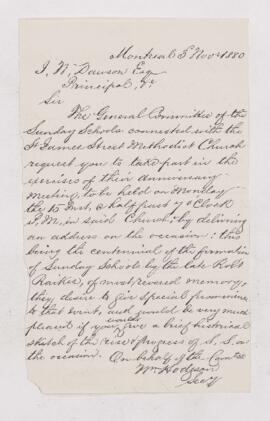 Montreal 5 Nov 1880
J. W. Dawson Esq
Principal, &c
Sir
The General Committee of the
Sunday Schools connected with the
St James Street Methodist Church
request you to take part in the
exercises of their Anniversary
Meeting, to be held on Monday
the 15 Inst, @ half past 7 o'Clock
P.M, in said Church; by delivering
an address on the occasion: this
being the centennial of the formation
of Sunday Schools by the late Robt
Raikes, of most revered memory,
they desire to give special prominence
to that event, and would be very much
pleased if you would give a brief historical
sketch of the rise & progress of S. S. on
the occasion. On behalf of the Comtee
Wm Hodgson
Secy